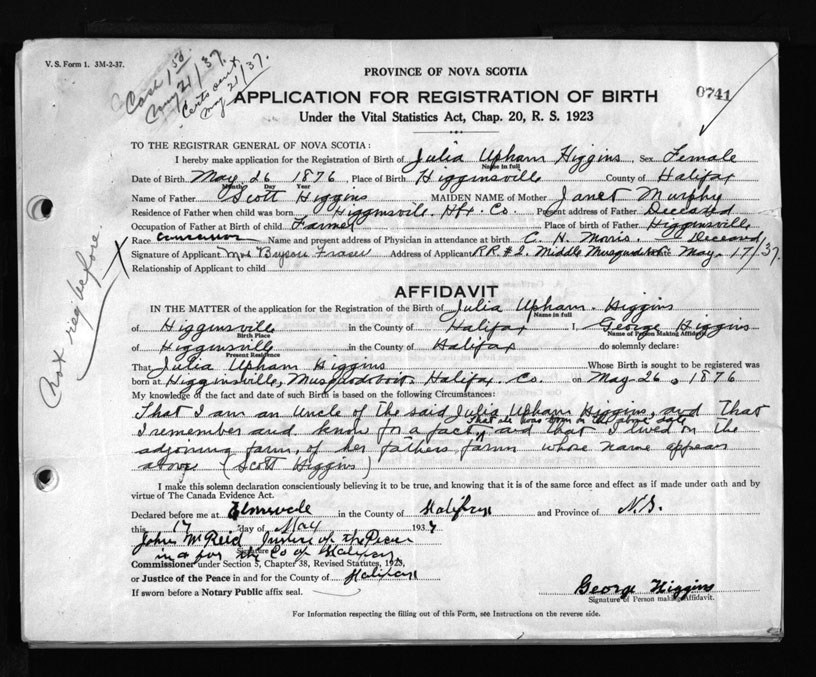 V. S. Form 1. 3M-2-37.
Cash 1.50
May 21/37.
Certs sent
May 21/37.
PROVINCE OF NOVA SCOTIA
0741
APPLICATION FOR REGISTRATION OF BIRTH
Under the Vital Statistics Act, Chap. 20, R. S. 1923
TO THE REGISTRAR GENERAL OF NOVA SCOTIA:
I hereby make application for the Registration of Birth of Julia Upham Higgins, Sex Female
Name in full
Date of Birth May 26 1876, Place of Birth Higginsville County of Halifax
Month Day Year
Name of Father Scott Higgins MAIDEN NAME of Mother Janet Murphy
Residence of Father when child was born Higginsville Hfx. Co. Present address of Father Deceased
Occupation of Father at Birth of child Farmer Place of birth of Father Higginsville
Race Name and present address of Physician in attendance at birth C. H. Morris. Deceased
Signature of Applicant Mrs Bryson Fraser Address of Applicant RR #2. Middle Musquodoboit Date May. 17/37.
Relationship of Applicant to child
Not reg. before.
X
AFFIDAVIT
IN THE MATTER of the application for the Registration of the Birth of Julia Upham. Higgins
Name in full
of Higginsville in the County of Halifax I, George Higgins
Birth Place Name of Person Making Affidavit
of Higginsville in the County of Halifax do solemnly declare:
Present Residence
That Julia Upham Higgins Whose Birth is sought to be registered was
born at Higginsville, Musquodoboit, Halifax. Co. on May 26, 1876
My knowledge of the fact and date of such Birth is based on the following Circumstances:
That I am an Uncle of the said Julia Upham Higgins, and that
I remember and know for a fact, that she was born on the above date and that I lived on the
adjoining farm, of her fathers farm whose name appears
above (Scott Higgins)
I make this solemn declaration conscientiously believing it to be true, and knowing that it is of the same force and effect as if made under oath and by
virtue of The Canada Evidence Act.
Declared before me at Elmsvale in the County of Halifax and Province of N.S.
this 17 day of May 1937
John McReid Justice of the Peace
Signature
in & for the Co of Halifax
Commissioner under Section 5, Chapter 38, Revised Statutes, 1923,
or Justice of the Peace in and for the County of Halifax
If sworn before a Notary Public affix seal.
George Higgins
Signature of Person making Affidavit.
For Information respecting the filling out of this Form, see Instructions on the reverse side.